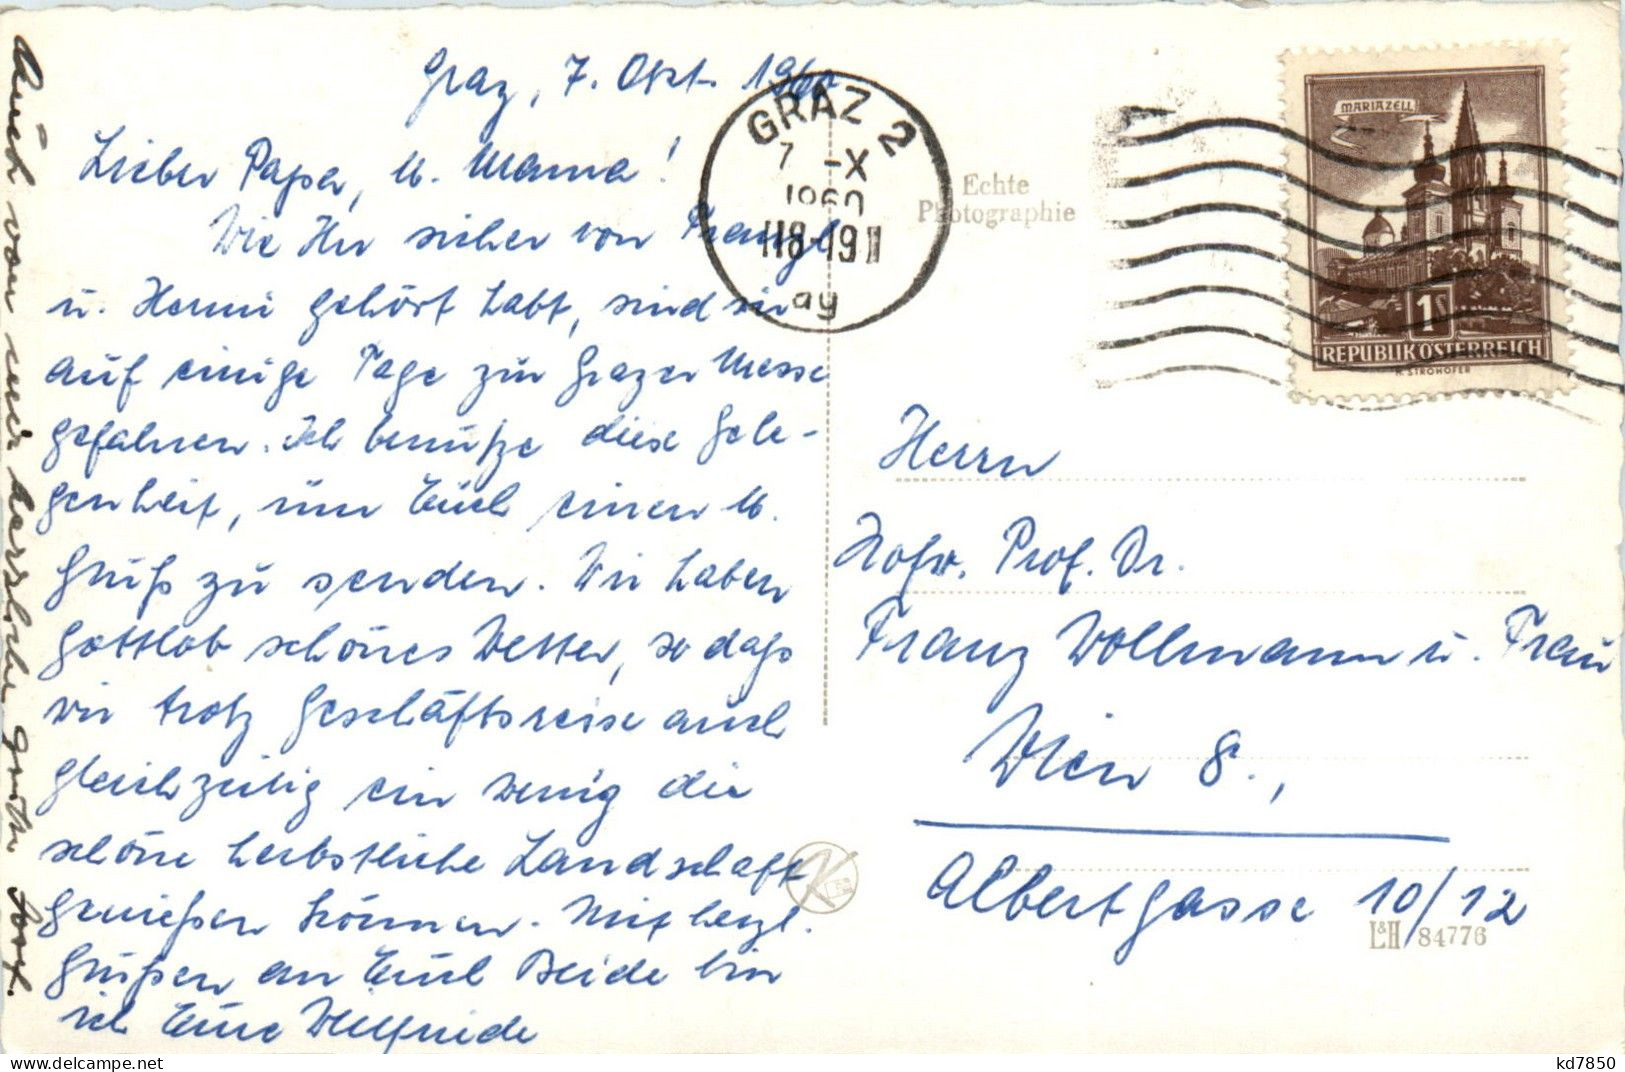 Graz, 7. Okt. 1960
Lieber Papa, u. Mama!
Wie Ihr sicher von Franzl
u. Hermi gehört habt, sind wir
auf einige Tage zur Grazer Messe
gefahren. Ich benütze diese Gele-
genheit, um Euch einen lb.
Gruß zu senden. Wir haben
gottlob schönes Wetter, so daß
wir trotz Geschäftsreise auch
gleichzeitig ein wenig die
schöne herbstliche Landschaft
genießen können. Mit herzl.
Grüßen an Euch Beide bin
ich Eure Wilfriede
Auch von mir herzliche Grüße
GRAZ 2
7 -X
1960
18-19
ay
Echte
Photographie
MARIAZELL
1S
REPUBLIK ÖSTERREICH
H. STROHOFER
Herrn
Hofr. Prof. Dr.
Franz Wollmann u. Frau
Wien 8.,
Albertgasse 10/12
K
L&H 84776
kd7850